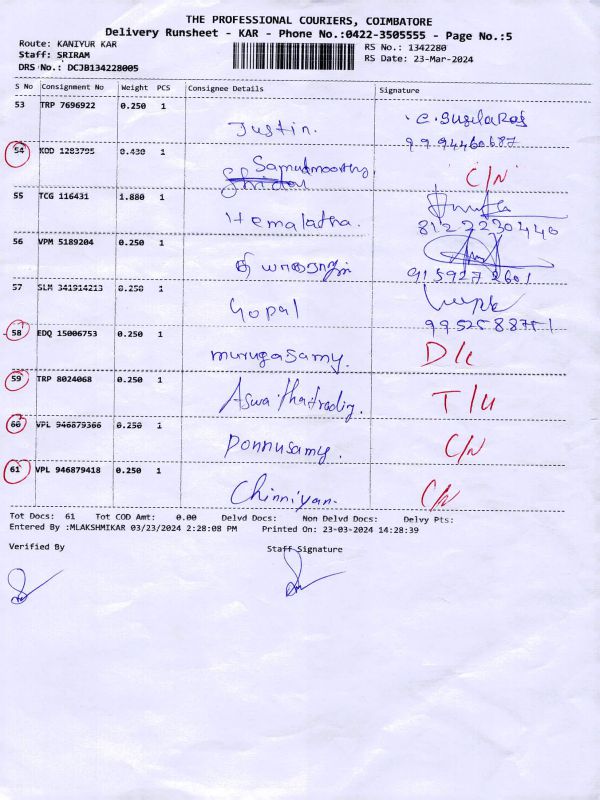 THE PROFESSIONAL COURIERS, COIMBATORE
Delivery Runsheet - KAR - Phone No.:0422-3505555 - Page No.:5
Route: KANIYUR KAR
RS No.: 1342280
Staff: SRIRAM
RS Date: 23-Mar-2024
DRS No.: DCJB134228005
S No Consignment No Weight PCS Consignee Details Signature
53 TRP 7696922 0.250 1
Justin. C. Suselaraj
9994460687
54 KOD 1283795 0.430 1
Samudmoorthy C/N
55 TCG 116431 1.880 1
Hemalatha.
8122230440
56 VPM 5189204 0.250 1
தியாகராஜன்
9159272601
57 SLM 341914213 0.250 1
Gopal
9952588751
58 EDQ 15006753 0.250 1
murugasamy. D/L
59 TRP 8024068 0.250 1
Aswathatrading. T/U
60 VPL 946879366 0.250 1
Ponnusamy. C/N
61 VPL 946879418 0.250 1
Chinniyan. C/N
Tot Docs: 61 Tot COD Amt: 0.00 Delvd Docs: Non Delvd Docs: Delvy Pts:
Entered By :MLAKSHMIKAR 03/23/2024 2:28:08 PM Printed On: 23-03-2024 14:28:39
Verified By Staff Signature